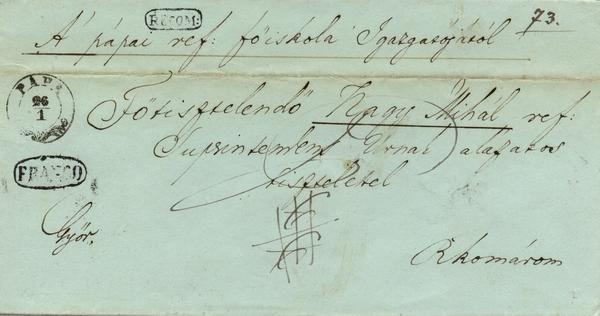 RECOM:
73.
A' pápai ref: főiskola Igazgatójától
PÁPA
26
1
Főtisztelendő Nagy Mihál ref:
Suprintendens Úrnak alázatos
tisztelettel
FRANCO
Győr.
RKomárom